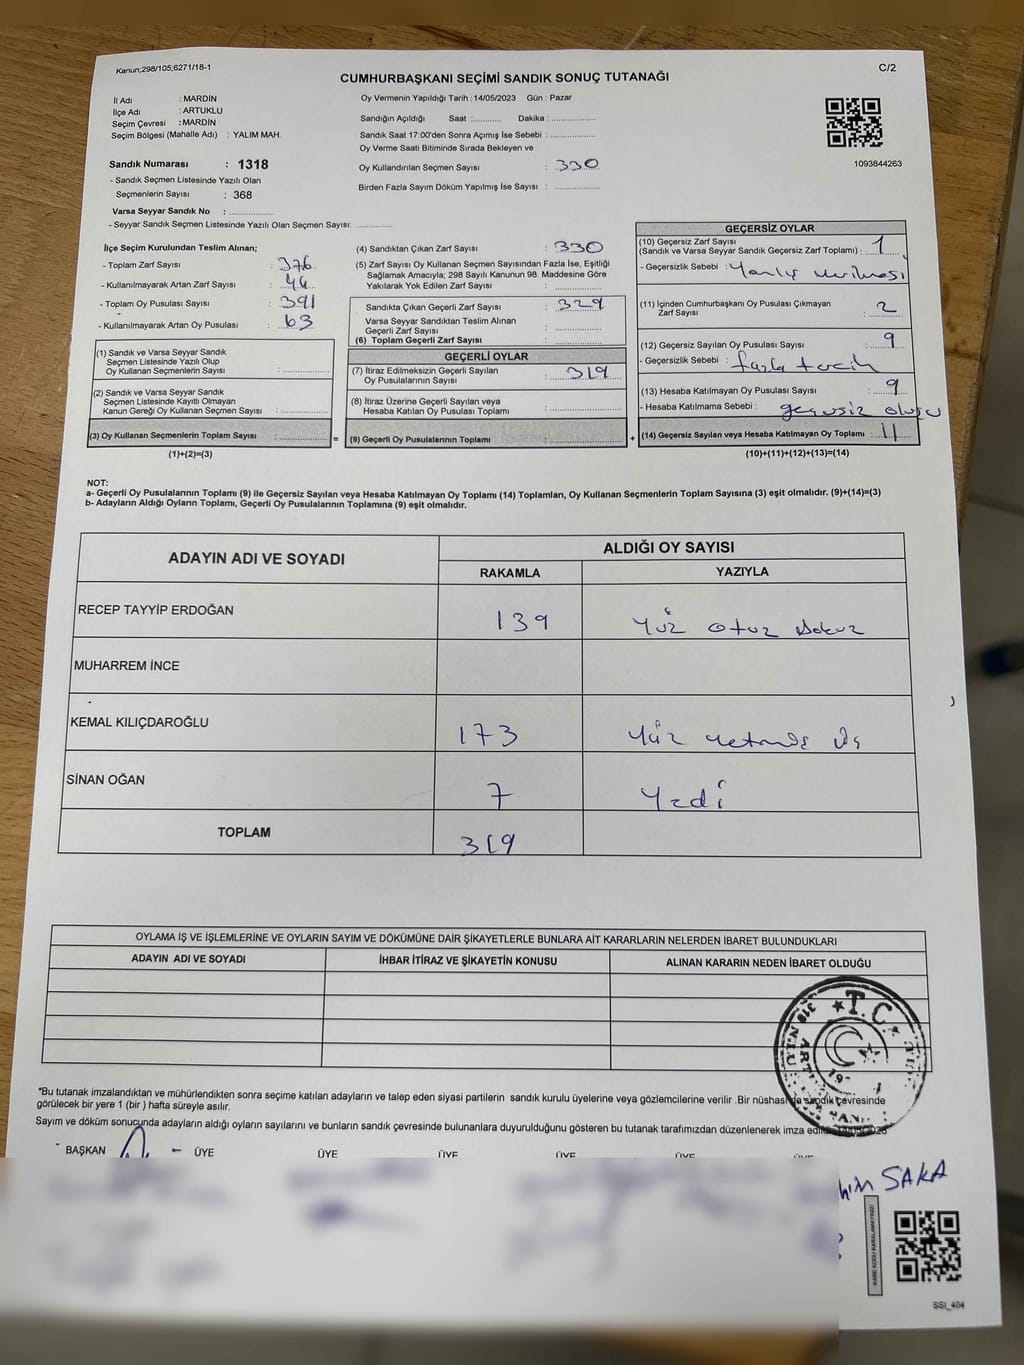 Kanun;298/105;6271/18-1
C/2
CUMHURBAŞKANI SEÇİMİ SANDIK SONUÇ TUTANAĞI
İl Adı : MARDİN
İlçe Adı : ARTUKLU
Seçim Çevresi : MARDİN
Seçim Bölgesi (Mahalle Adı) : YALIM MAH.
Sandık Numarası : 1318
- Sandık Seçmen Listesinde Yazılı Olan
Seçmenlerin Sayısı : 368
Varsa Seyyar Sandık No : ................
- Seyyar Sandık Seçmen Listesinde Yazılı Olan Seçmen Sayısı: .............
Oy Vermenin Yapıldığı Tarih : 14/05/2023 Gün : Pazar
Sandığın Açıldığı Saat :........... Dakika :................
Sandık Saat 17:00'den Sonra Açımış İse Sebebi : ................
Oy Verme Saati Bitiminde Sırada Bekleyen ve
Oy Kullandırılan Seçmen Sayısı : 330
Birden Fazla Sayım Döküm Yapılmış İse Sayısı : ................
1093844263
İlçe Seçim Kurulundan Teslim Alınan;
- Toplam Zarf Sayısı : 376
- Kullanılmayarak Artan Zarf Sayısı : 44
- Toplam Oy Pusulası Sayısı : 391
- Kullanılmayarak Artan Oy Pusulası : 63
(1) Sandık ve Varsa Seyyar Sandık
Seçmen Listesinde Yazılı Olup
Oy Kullanan Seçmenlerin Sayısı : ................
(2) Sandık ve Varsa Seyyar Sandık
Seçmen Listesinde Kayıtlı Olmayan
Kanun Gereği Oy Kullanan Seçmen Sayısı : ................
(3) Oy Kullanan Seçmenlerin Toplam Sayısı : ................ =
(1)+(2)=(3)
(4) Sandıktan Çıkan Zarf Sayısı : 330
(5) Zarf Sayısı Oy Kullanan Seçmen Sayısından Fazla İse, Eşitliği
Sağlamak Amacıyla; 298 Sayılı Kanunun 98. Maddesine Göre
Yakılarak Yok Edilen Zarf Sayısı : ................
Sandıkta Çıkan Geçerli Zarf Sayısı : 329
Varsa Seyyar Sandıktan Teslim Alınan
Geçerli Zarf Sayısı : ................
(6) Toplam Geçerli Zarf Sayısı : ................
GEÇERLİ OYLAR
(7) İtiraz Edilmeksizin Geçerli Sayılan
Oy Pusulalarının Sayısı : 319
(8) İtiraz Üzerine Geçerli Sayılan veya
Hesaba Katılan Oy Pusulası Toplamı : ................
(9) Geçerli Oy Pusulalarının Toplamı : ................ +
GEÇERSİZ OYLAR
(10) Geçersiz Zarf Sayısı
(Sandık ve Varsa Seyyar Sandık Geçersiz Zarf Toplamı) : 1
- Geçersizlik Sebebi : Yanlış verilmesi
(11) İçinden Cumhurbaşkanı Oy Pusulası Çıkmayan
Zarf Sayısı : 2
(12) Geçersiz Sayılan Oy Pusulası Sayısı : 9
- Geçersizlik Sebebi : fazla tercih
(13) Hesaba Katılmayan Oy Pusulası Sayısı : 9
- Hesaba Katılmama Sebebi : geçersiz oluşu
(14) Geçersiz Sayılan veya Hesaba Katılmayan Oy Toplamı : 11
(10)+(11)+(12)+(13)=(14)
NOT:
a- Geçerli Oy Pusulalarının Toplamı (9) ile Geçersiz Sayılan veya Hesaba Katılmayan Oy Toplamı (14) Toplamları, Oy Kullanan Seçmenlerin Toplam Sayısına (3) eşit olmalıdır. (9)+(14)=(3)
b- Adayların Aldığı Oyların Toplamı, Geçerli Oy Pusulalarının Toplamına (9) eşit olmalıdır.
ADAYIN ADI VE SOYADI
ALDIĞI OY SAYISI
RAKAMLA YAZIYLA
RECEP TAYYİP ERDOĞAN 139 Yüz otuz dokuz
MUHARREM İNCE
KEMAL KILIÇDAROĞLU 173 Yüz yetmiş üç
SİNAN OĞAN 7 Yedi
TOPLAM 319
OYLAMA İŞ VE İŞLEMLERİNE VE OYLARIN SAYIM VE DÖKÜMÜNE DAİR ŞİKAYETLERLE BUNLARA AİT KARARLARIN NELERDEN İBARET BULUNDUKLARI
ADAYIN ADI VE SOYADI İHBAR İTİRAZ VE ŞİKAYETİN KONUSU ALINAN KARARIN NEDEN İBARET OLDUĞU
T.C.
*Bu tutanak imzalandıktan ve mühürlendikten sonra seçime katılan adayların ve talep eden siyasi partilerin sandık kurulu üyelerine veya gözlemcilerine verilir .Bir nüshası da sandık çevresinde
görülecek bir yere 1 (bir ) hafta süreyle asılır.
Sayım ve döküm sonucunda adayların aldığı oyların sayılarını ve bunların sandık çevresinde bulunanlara duyurulduğunu gösteren bu tutanak tarafımızdan düzenlenerek imza
BAŞKAN ÜYE ÜYE ÜYE ÜYE ÜYE
SAKA
KARE KODU KARALAMAYINIZ!
SSI_404